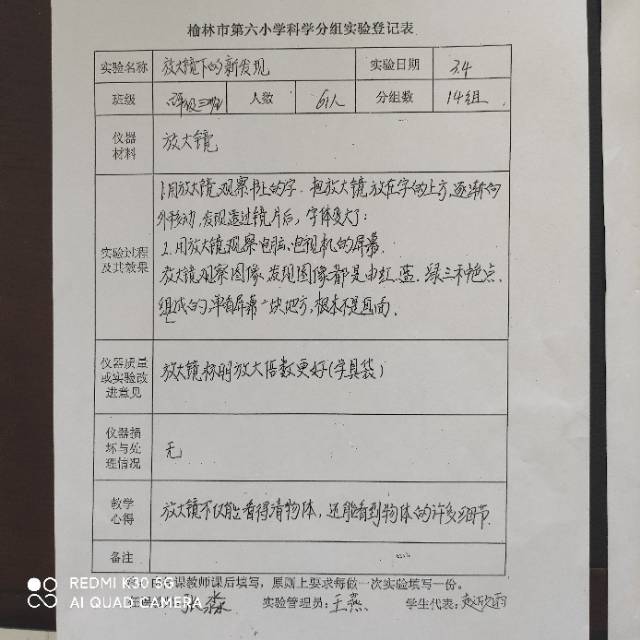 榆林市第六小学科学分组实验登记表
实验名称 放大镜下的新发现 实验日期 3.4
班级 人数 61人 分组数 14组
仪器材料 放大镜
实验过程及其效果
1.用放大镜观察书上的字.把放大镜放在字的上方,逐渐向
外移动,发现透过镜片后,字体变大了:
2.用放大镜观察电脑、电视机的屏幕.
放大镜观察图像、发现图像都是由红.蓝.绿三种色点.
组成的,单看屏幕一块地方,根本不是画面.
仪器质量或实验改进意见 放大镜标明放大倍数更好(学具袋)
仪器损坏与处理情况 无
教学心得 放大镜不仅能看得清物体,还能看到物体的许多细节.
备注
课教师课后填写,原则上要求每做一次实验填写一份。
实验管理员:王燕 学生代表:
REDMI K30 5G
AI QUAD CAMERA